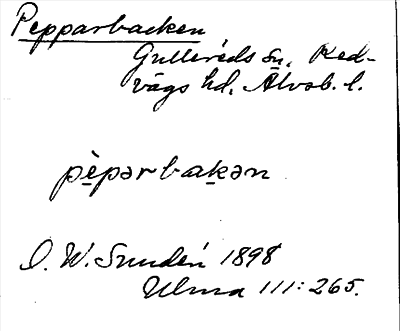 Pepparbacken
Gullereds sn, Red-
vägs hd, Älvsb. l.
pèpərbakən
D. W. Sundén 1898
Ulma 111:265.